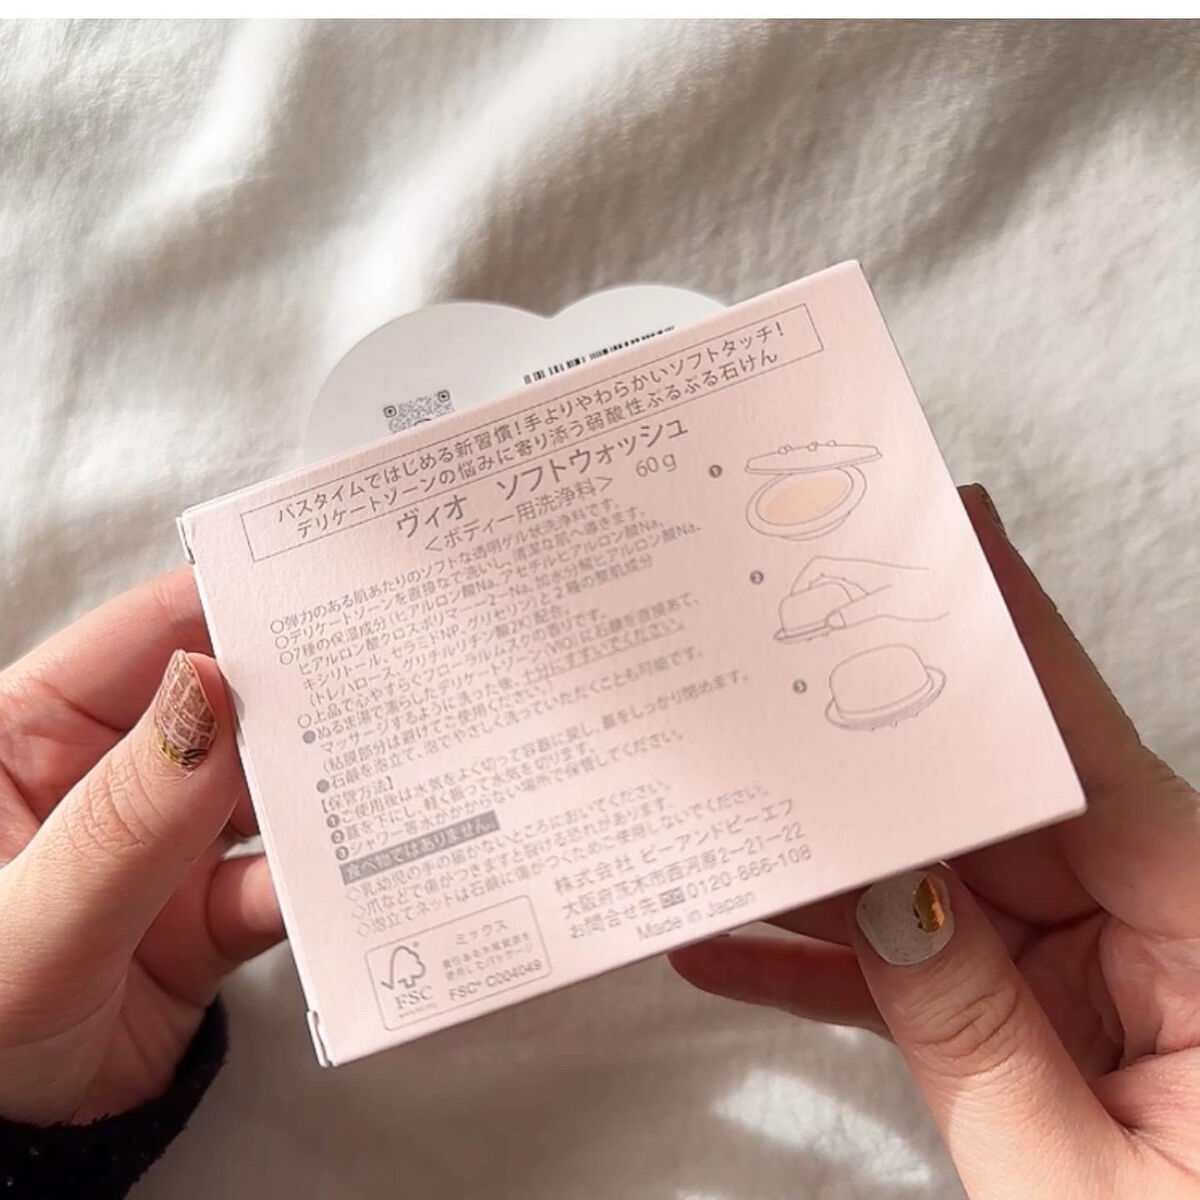 バスタイムではじめる新習慣！手よりやわらかいソフトタッチ！
デリケートゾーンの悩みに寄り添う弱酸性ぷるぷる石けん
ヴィオ ソフトウォッシュ
＜ボディー用洗浄料＞ 60g
○弾力のある肌あたりのソフトな透明ゲル状洗浄料です。
○デリケートゾーンを直接なで洗いし、清潔な肌へ導きます。
○7種の保湿成分(ヒアルロン酸Na、アセチルヒアルロン酸Na、
ヒアルロン酸クロスポリマー－2－Na、加水分解ヒアルロン酸Na、
キシリトール、セラミドNP、グリセリン)と2種の整肌成分
(トレハロース、グリチルリチン酸2K)配合。
○上品で心やすらぐフローラルムスクの香りです。
●ぬるま湯で濡らしたデリケートゾーン(VIO)に石鹸を直接あて、
マッサージするように洗った後、十分にすすいでください。
(粘膜部分は避けてご使用ください。)
●石鹸を泡立て、泡でやさしく洗っていただくことも可能です。
【保管方法】
❶ご使用後は水気をよく切って容器に戻し、蓋をしっかり閉めます。
❷蓋を下にし、軽く振って水気を切ります。
❸シャワー等水がかからない場所で保管してください。
食べ物ではありません。
◇乳幼児の手の届かないところにおいてください。
◇爪などで傷がつきますと裂ける恐れがあります。
◇泡立てネットは石鹸に傷がつくためご使用しないでください。
株式会社 ピーアンドピーエフ
大阪府茨木市西河原2-21-22
お問合せ先 0120-866-108
Made in Japan
ミックス
責任ある木質資源を
使用したパッケージ
FSC
FSC® C004049
❶
❷
❸